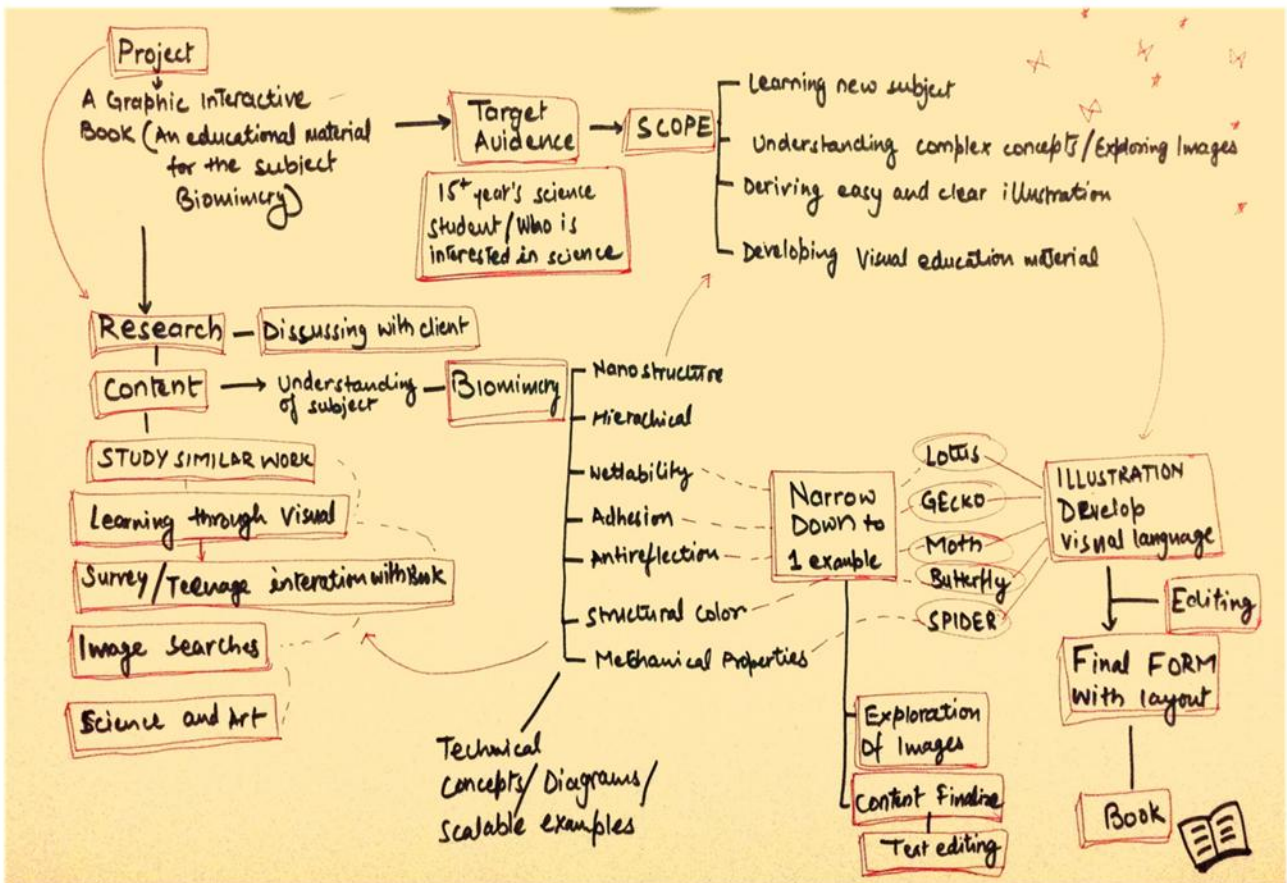 Project
A Graphic Interactive
Book (An educational material
for the subject
Biomimcry)
Target
Auidence
15+ year's science
student/Who is
interested in science
SCOPE
Learning new subject
Understanding complex concepts/Exploring Images
Deriving easy and clear illustration
Developing Visual education material
Research
Discussing with client
Content
Understanding
of subject
Biomimcry
STUDY SIMILAR WORK
Learning through Visual
Survey/Teenage interation with Book
Image Searches
Science and Art
Nanostructure
Hierachical
Wettability
Adhesion
Antireflection
Structural Color
Mechanical Properties
Technical
Concepts/Diagrams/
Scalable examples
Narrow
Down to
1 example
Lottus
GECKO
Moth
Butterfly
SPIDER
Exploration
Of Images
Content Finalize
Text editing
ILLUSTRATION
Develop
Visual language
Editing
Final FORM
With layout
Book